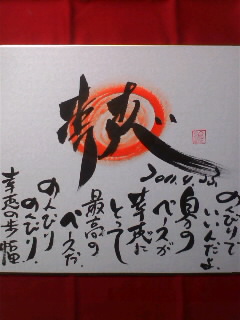 幸恵
のんびりで
いいんだよ
自分の
ペースが
幸恵に
とって
最高の
ペースだ
のんびり
のんびり
幸恵の歩幅